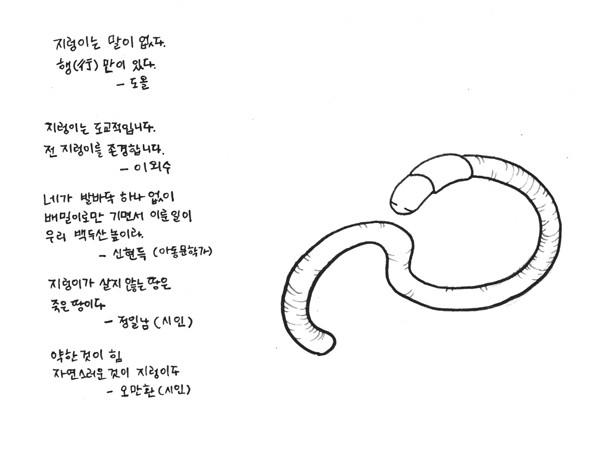 지렁이는 말이 없다.
행(行)만이 있다.
- 도올
지렁이는 도교적입니다.
전 지렁이를 존경합니다.
- 이외수
네가 발바닥 하나 없이
배밀이로만 기면서 이룬일이
우리 백두산 높이라.
- 신현득 (아동문학가)
지렁이가 살지 않는 땅은
죽은 땅이다
- 정일남 (시인)
약한 것이 힘
자연스러운 것이 지렁이다
- 오만환 (시인)